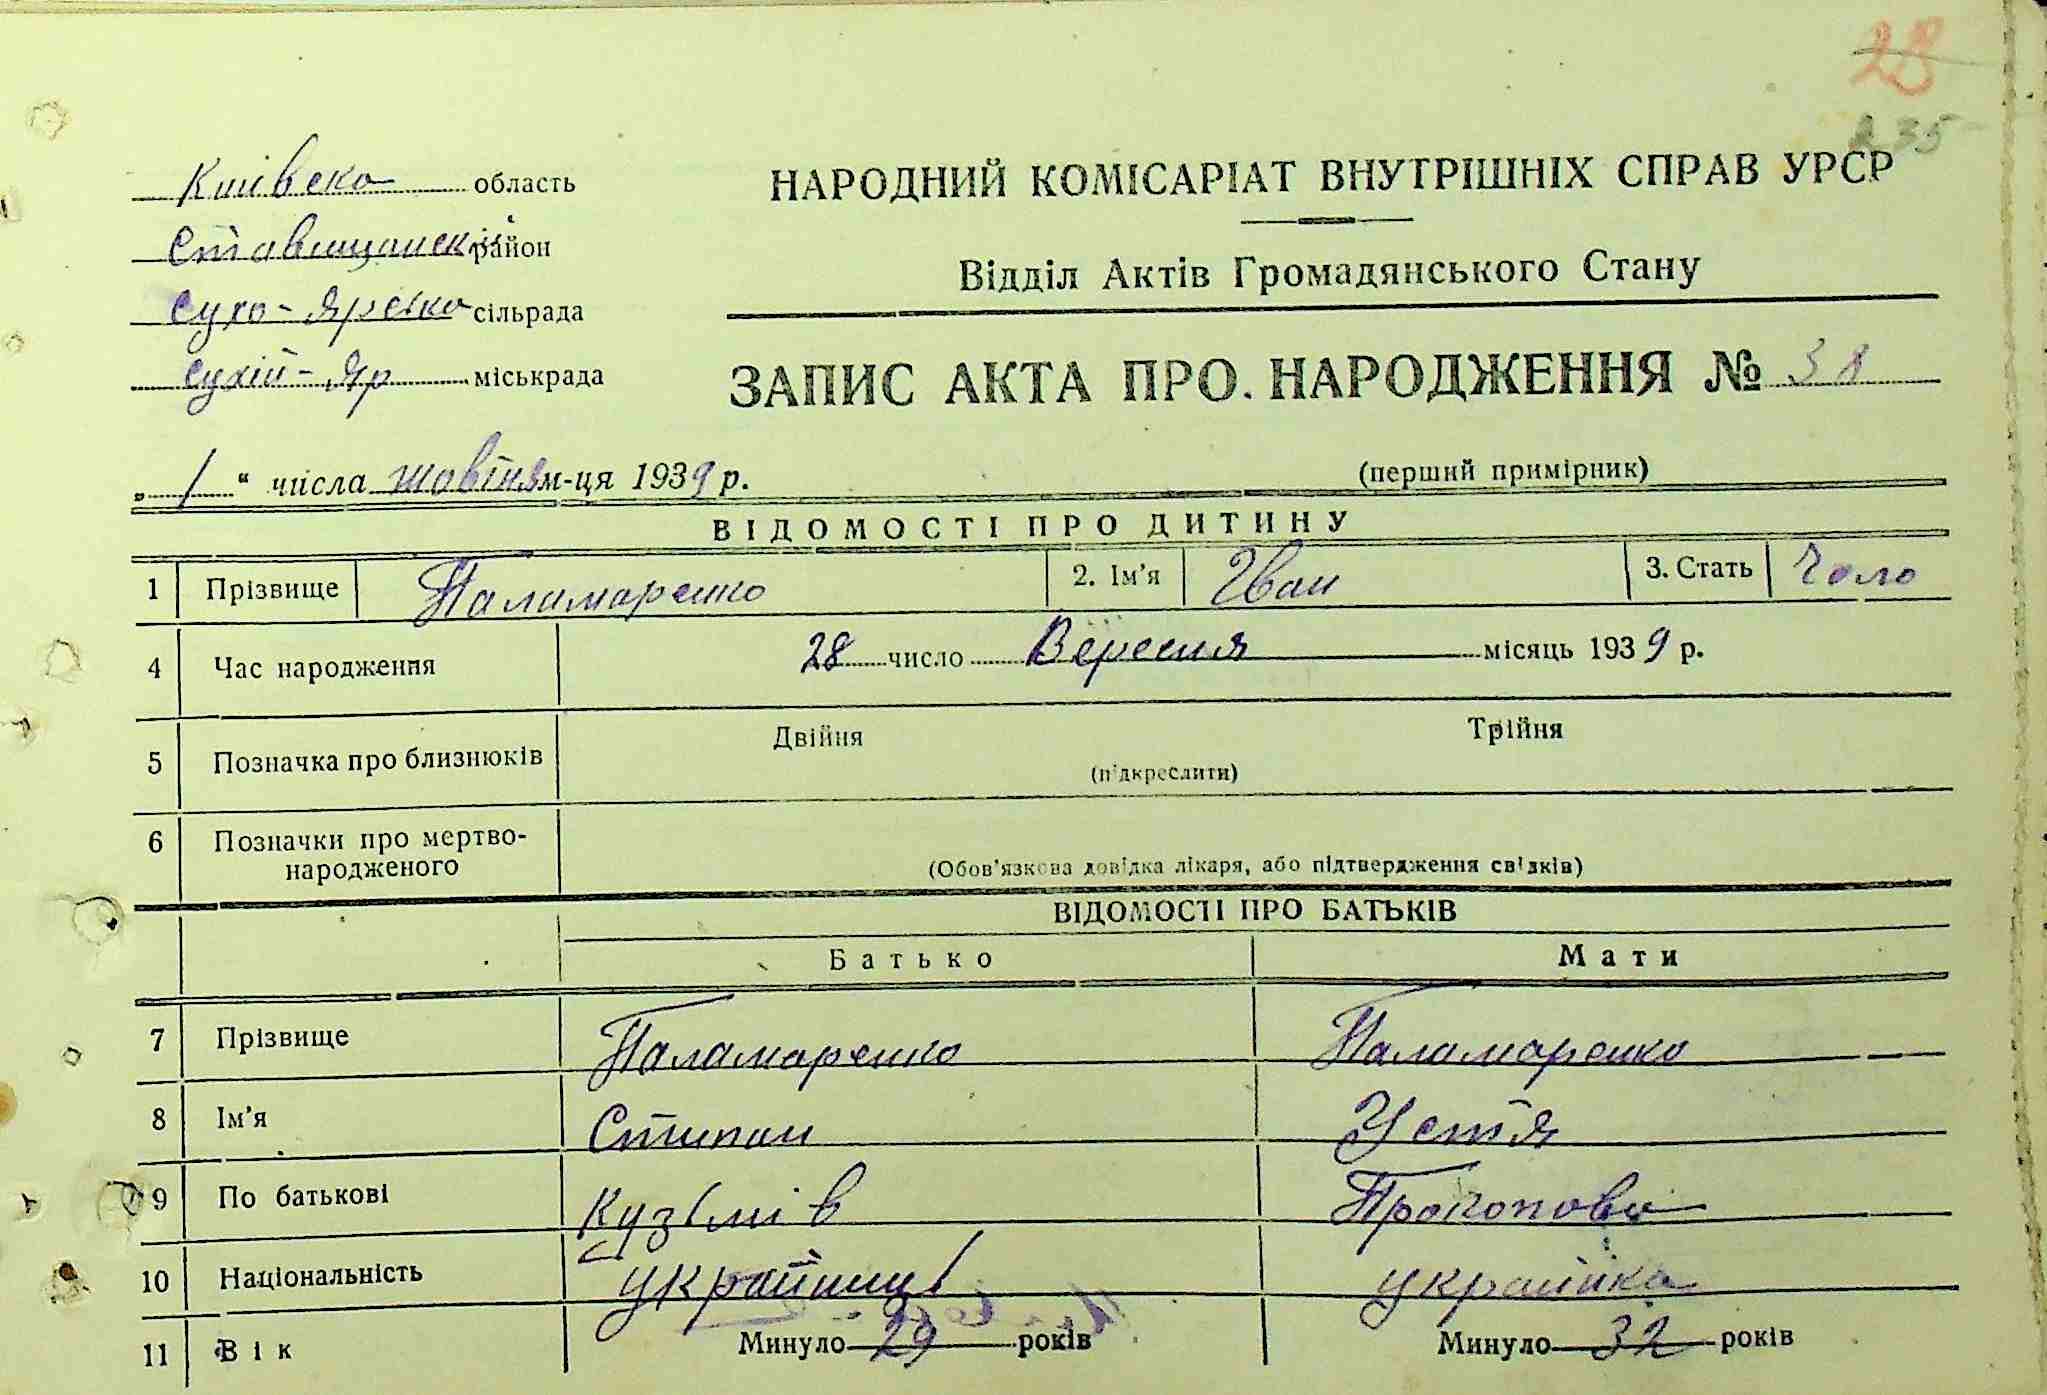 28
235
Київска область
НАРОДНИЙ КОМІСАРІАТ ВНУТРІШНІХ СПРАВ УРСР
Ставищанский район
Відділ Актів Громадянського Стану
Сухо-Ярська сільрада
Сухій-Яр міськрада
ЗАПИС АКТА ПРО НАРОДЖЕННЯ № 38
„1“ числа жовтня м-ця 1939 р.
(перший примірник)
ВІДОМОСТІ ПРО ДИТИНУ
1 Прізвище Паламаренко 2. Ім'я Іван 3. Стать Чоло
4 Час народження 28 число Вересня місяць 1939 р.
5 Позначка про близнюків Двійня Трійня
(підкреслити)
6 Позначки про мертво-
народженого (Обов'язкова довідка лікаря, або підтвердження свідків)
ВІДОМОСТІ ПРО БАТЬКІВ
Батько Мати
7 Прізвище Паламаренко Паламаренко
8 Ім'я Стипан Устя
9 По батькові Кузьмів Прокопова
10 Національність украйинець украйинка
11 Вік Минуло 29 років Минуло 32 років